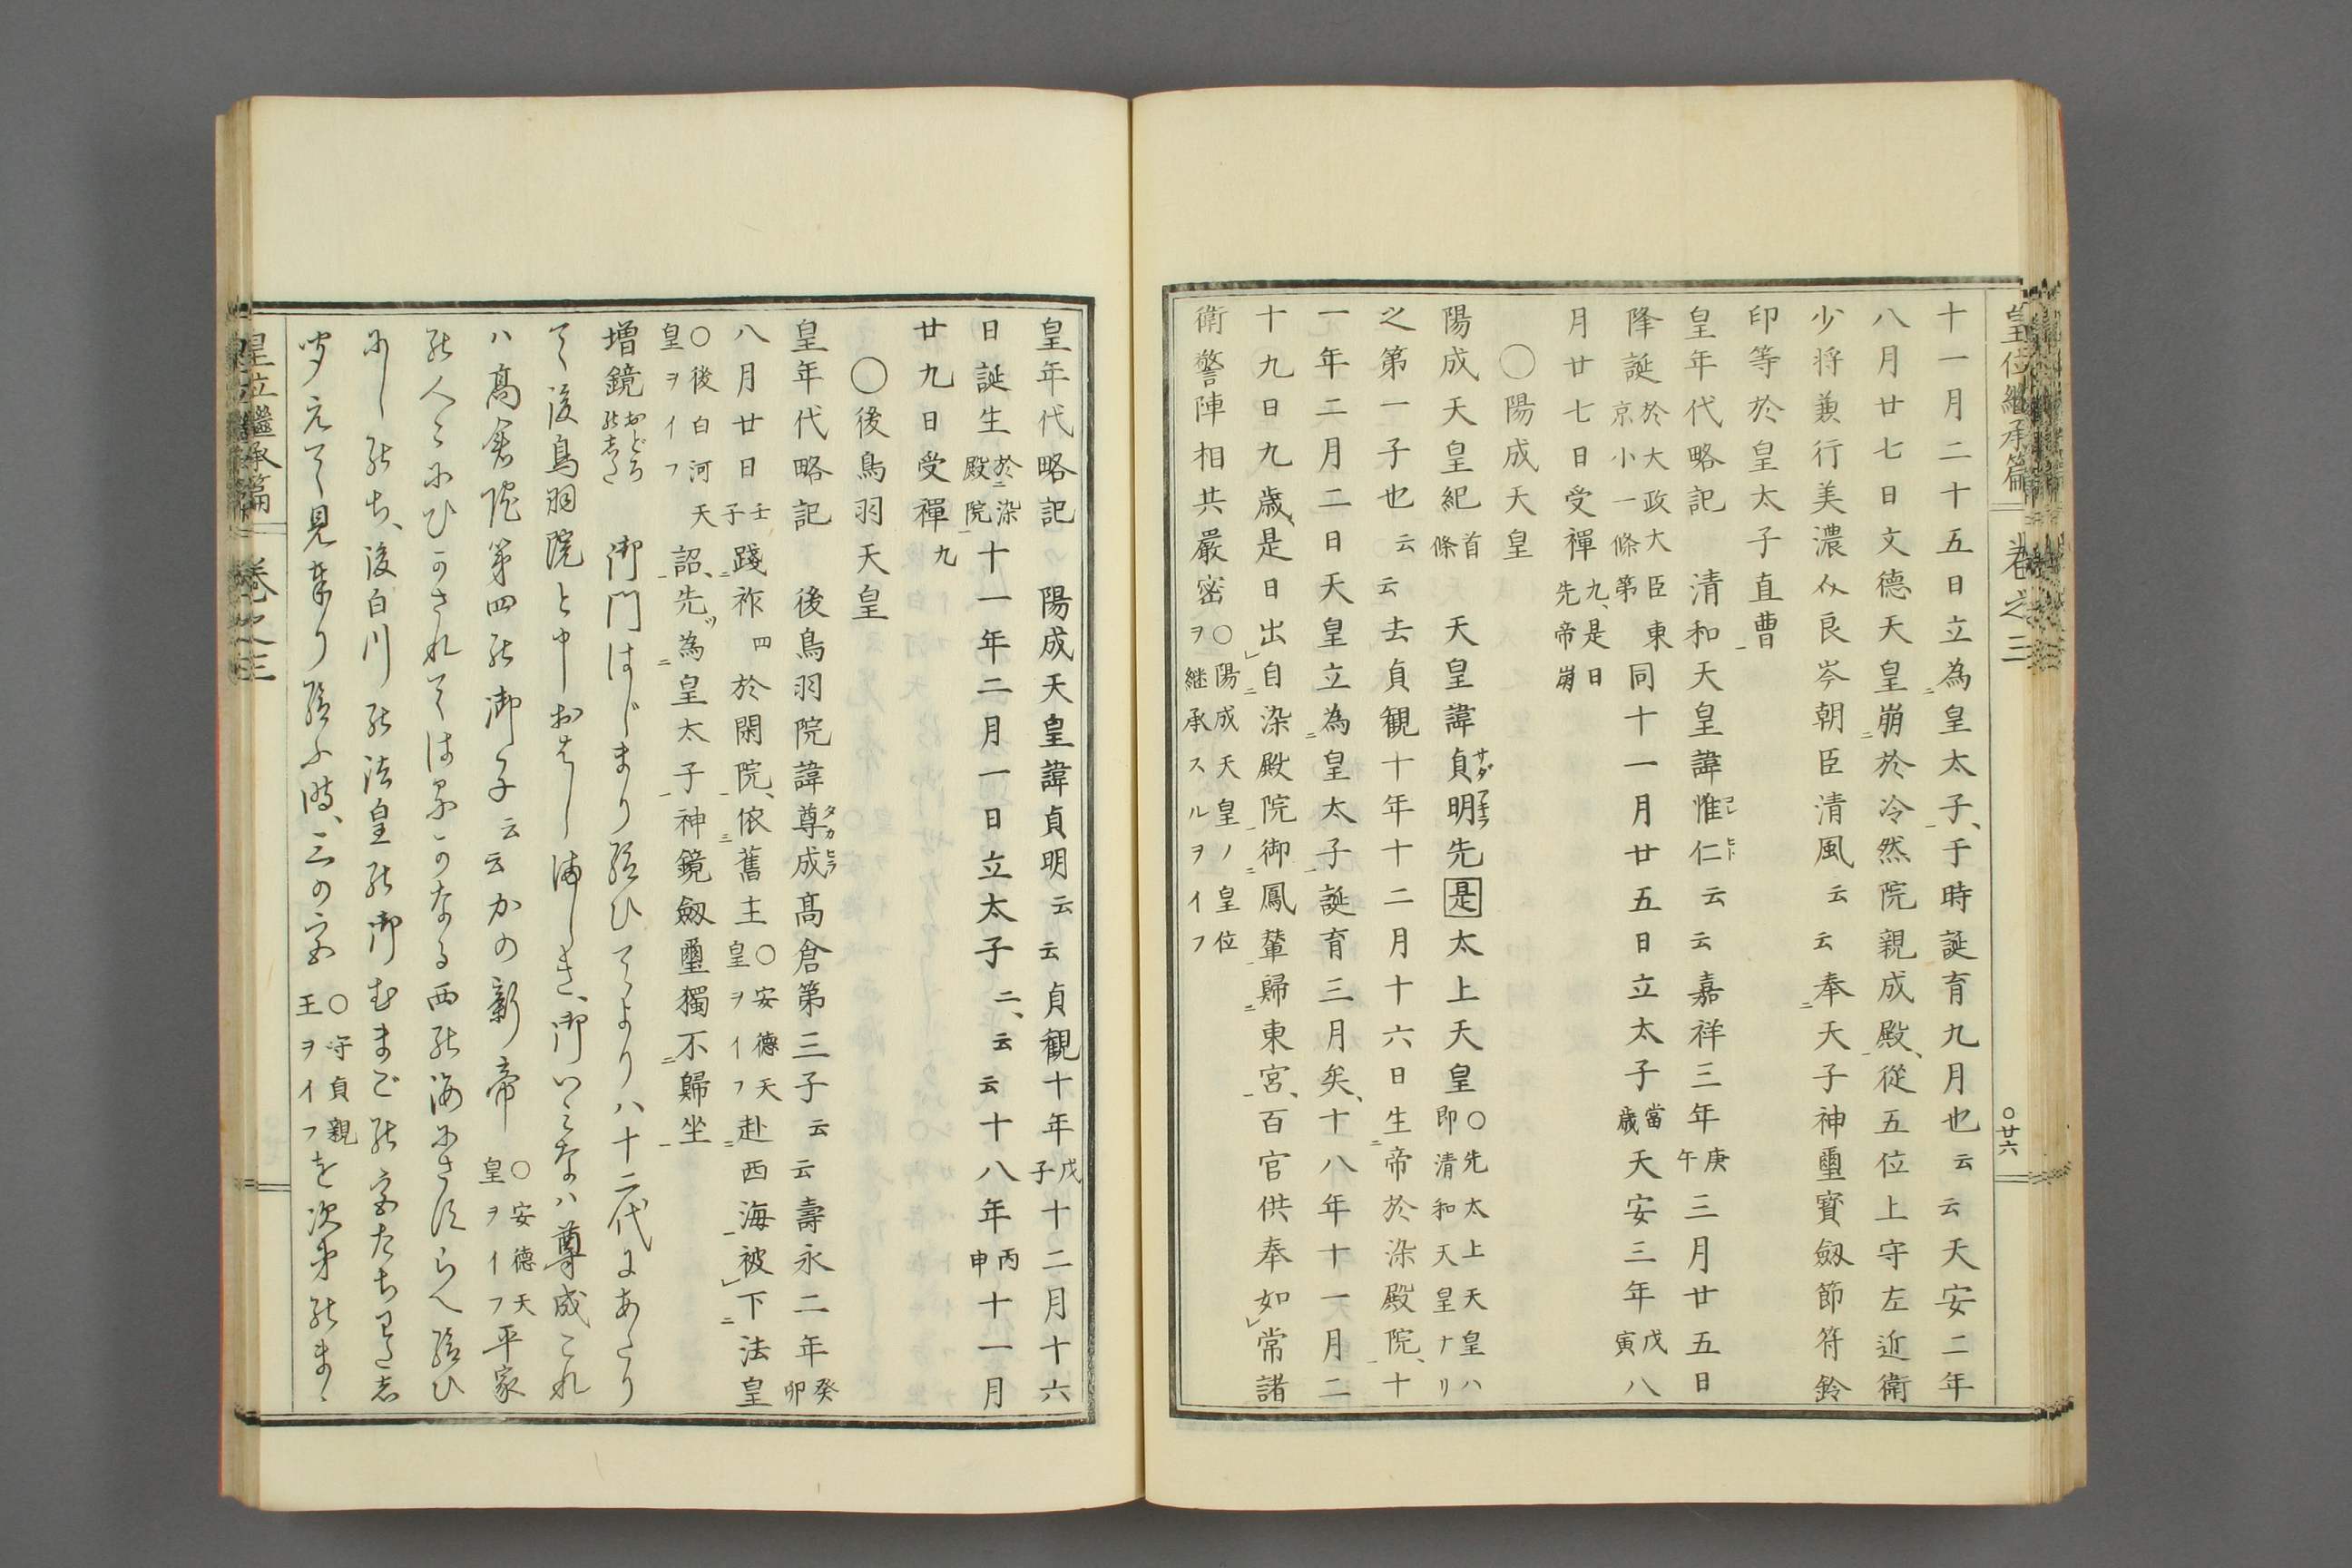 皇位継承篇 卷之三 ○廿六
十一月二十五日立為皇太子、于時誕育九月也云云天安二年
八月廿七日文德天皇崩於冷然院親成殿、從五位上守左近衛
少将兼行美濃介良岑朝臣清風云云奉天子神璽寳劔節符鈴
印等於皇太子直曹
皇年代略記 清和天皇諱惟仁云云嘉祥三年庚午三月廿五日
降誕於大政大臣東京小一條第同十一月廿五日立太子當歳天安三年戊寅八
月廿七日受禪九、是日先帝崩
○陽成天皇
陽成天皇紀首條 天皇諱貞明先是太上天皇○先太上天皇ハ即清和天皇ナリ
之第一子也云云去貞観十年十二月十六日生帝於染殿院、十
一年二月二日天皇立為皇太子誕育三月矣、十八年十一月二
十九日九歳、是日出自染殿院御鳳輦歸東宮、百官供奉如常諸
衛警陣相共嚴密○陽成天皇ノ皇位ヲ継承スルヲイフ
皇年代略記 陽成天皇諱貞明云云貞観十年戊子十二月十六
日誕生於染殿院十一年二月一日立太子二、云云十八年丙申十一月
廿九日受禪九
○後鳥羽天皇
皇年代略記 後鳥羽院諱尊成髙倉第三子云云壽永二年癸卯
八月廿日壬子踐祚四於閑院、依舊主○安德天皇ヲイフ赴西海被下法皇
○後白河天皇ヲイフ詔、先為皇太子神鏡劔璽獨不歸坐
増鏡おどろ能志た 御門はじまり給ひてより八十二代にあたり
て後鳥羽院と申おはしましき、御いミなハ尊成これ
ハ髙倉院第四能御子云云かの新帝○安德天皇ヲイフ平家
能人々にひかされてはるかなる西能海にさすらへ給ひ
にし能ち、後白川能法皇能御むまご能宮たちわたし
聞えて見奉り給ふ時、三の宮○守貞親王ヲイフを次第能まゝ
皇位繼承篇 卷之三